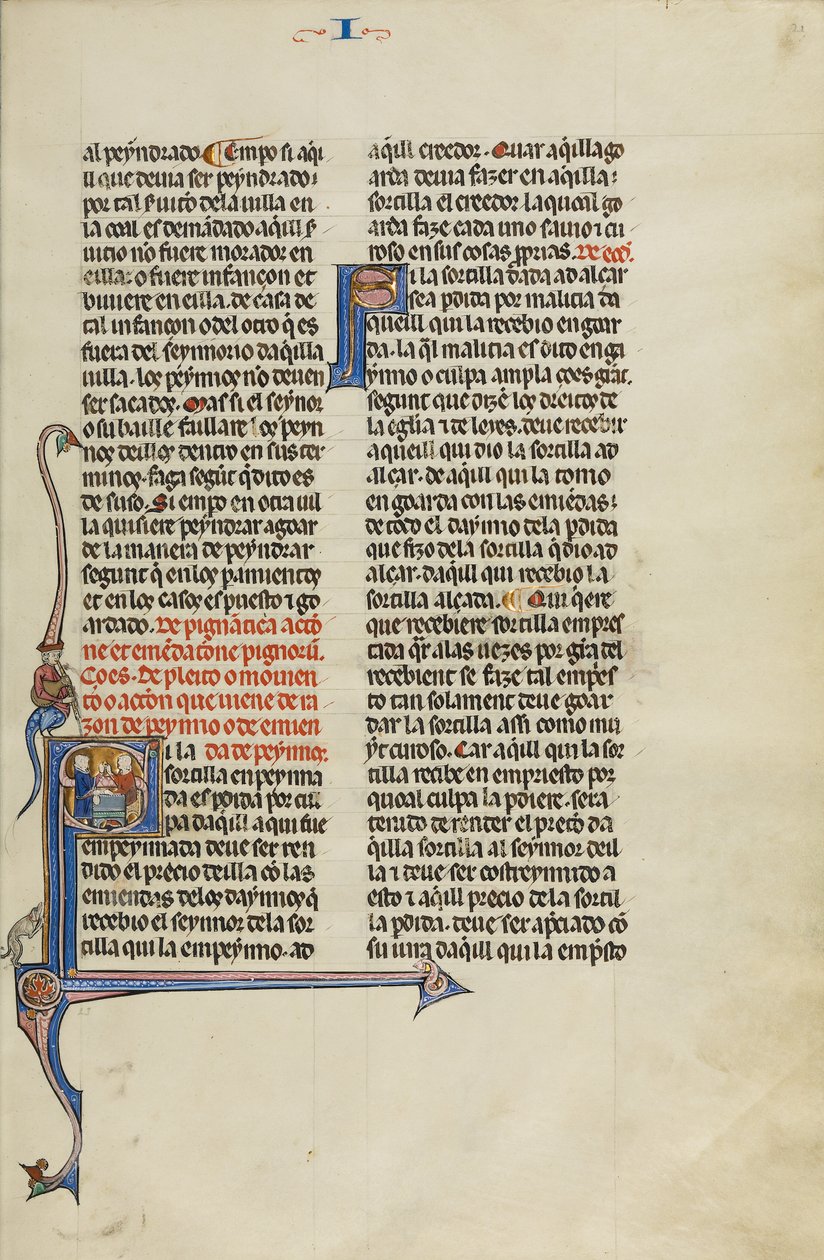 I
al peyndrado. Empo si aq̃i
ll que deuia ser peyndrado:
por tal ẜuicio dela uilla en
la coal es demãdado aq̃ill ẜ
uicio nõ fuere morador en
eilla: o fuere infançon et
biuiere en eilla. de casa de
tal infançon o del otro q̃ es
fuera del seynnorio daq̃illa
uilla. los peynnos nõ deuen
ser sacados. Mas si el seynor
o su baille fullare los peyn
nos deillos dentro en sus ter
minos. faga segũt q̃ dito es
de suso. Si empo en otra uil
la quisiere peyndrar agoar
de la manera de peyndrar
segunt q̃ en los paramientos
et en los casos es puesto ⁊ go
ardado. De pignãticia actõ
ne et emẽdatone pignorũ.
Coes. De pleito o mouien
to o actõn que uiene de ra
zon de peynno o de emien
Si la da de peynnos.
sortilla en peynna
da es pdida por cul
pa daq̃ill a qui fue
empeynnada deue ser ren
dido el precio deilla cõ las
emiendas delos daynnos q̃
recebio el seynnor dela sor
tilla qui la empeynno. ad
aq̃ill creedor. Quar aq̃illa go
arda deuia fazer en aq̃illa:
sortilla el creedor la quoal go
arda faze cada uno sauio ⁊ cu
roso en sus cosas pprias. De eod̃.
Si la sortilla dada ad alçar
sea pdida por malicia da
queill qui la recebio en goar
da. la q̃l malicia es dito engã
ynno o culpa ampla coes grãt.
segunt que dizẽ los dreitos de
la eglia ⁊ de leyes. deue recebir
aqueill qui dio la sortilla ad
alçar. de aq̃ill qui la tomo
en goarda con las emiẽdas:
de todo el daynno dela pdida
que fizo dela sortilla q̃ dio ad
alçar. daq̃ill qui recebio la
sortilla alçada. Qui q̃ere
que recebiere sortilla empres
tada q̃r alas uezes por grã del
recebient se faze tal empes
to tan solament deue goar
dar la sortilla assi como mu
yt curoso. Car aq̃ill qui la sor
tilla recibe en empriesto por
quoal culpa la pdiere. sera
tenido de render el precio da
q̃illa sortilla al seynnor deil
la ⁊ deue ser costreynnido a
esto ⁊ aq̃ill precio de la sortil
la pdida. deue ser apciado cõ
su iura daq̃ill qui la emp̃sto